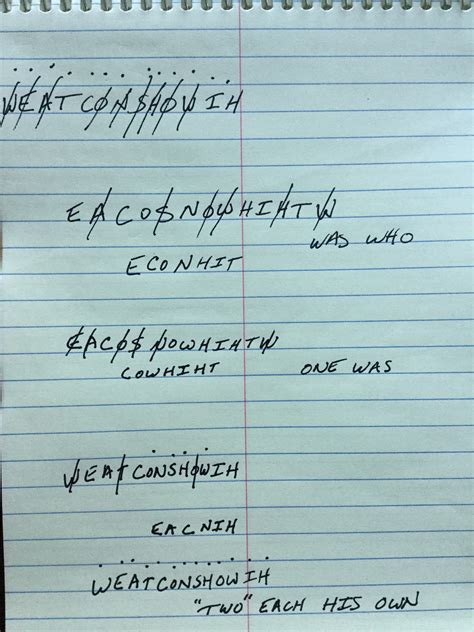 WEATCONSHOWIH
EACOSNOWHIHTW
WAS WHO
ECONHIT
EACOSNOWHIHTW
COWHIHT ONE WAS
WEATCONSHOWIH
EACNIH
WEATCONSHOWIH
"TWO" EACH HIS OWN